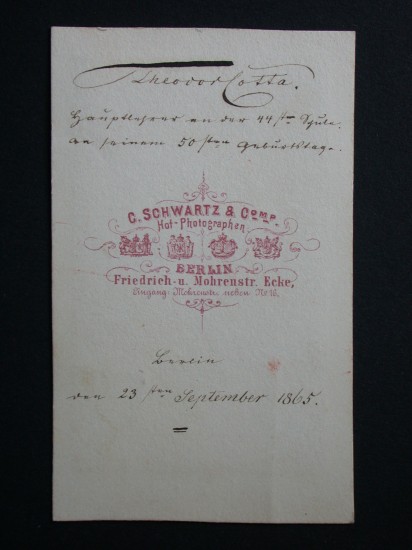 Theodor Cotta.
Hauptlehrer an der 44sten Schule.
an seinem 50sten Geburtstage.
C. SCHWARTZ & COMP.
Hof-Photographen
BERLIN
Friedrich- u. Mohrenstr. Ecke,
Eingang: Mohrenstr. neben No 16.
Berlin
den 23sten September 1865.